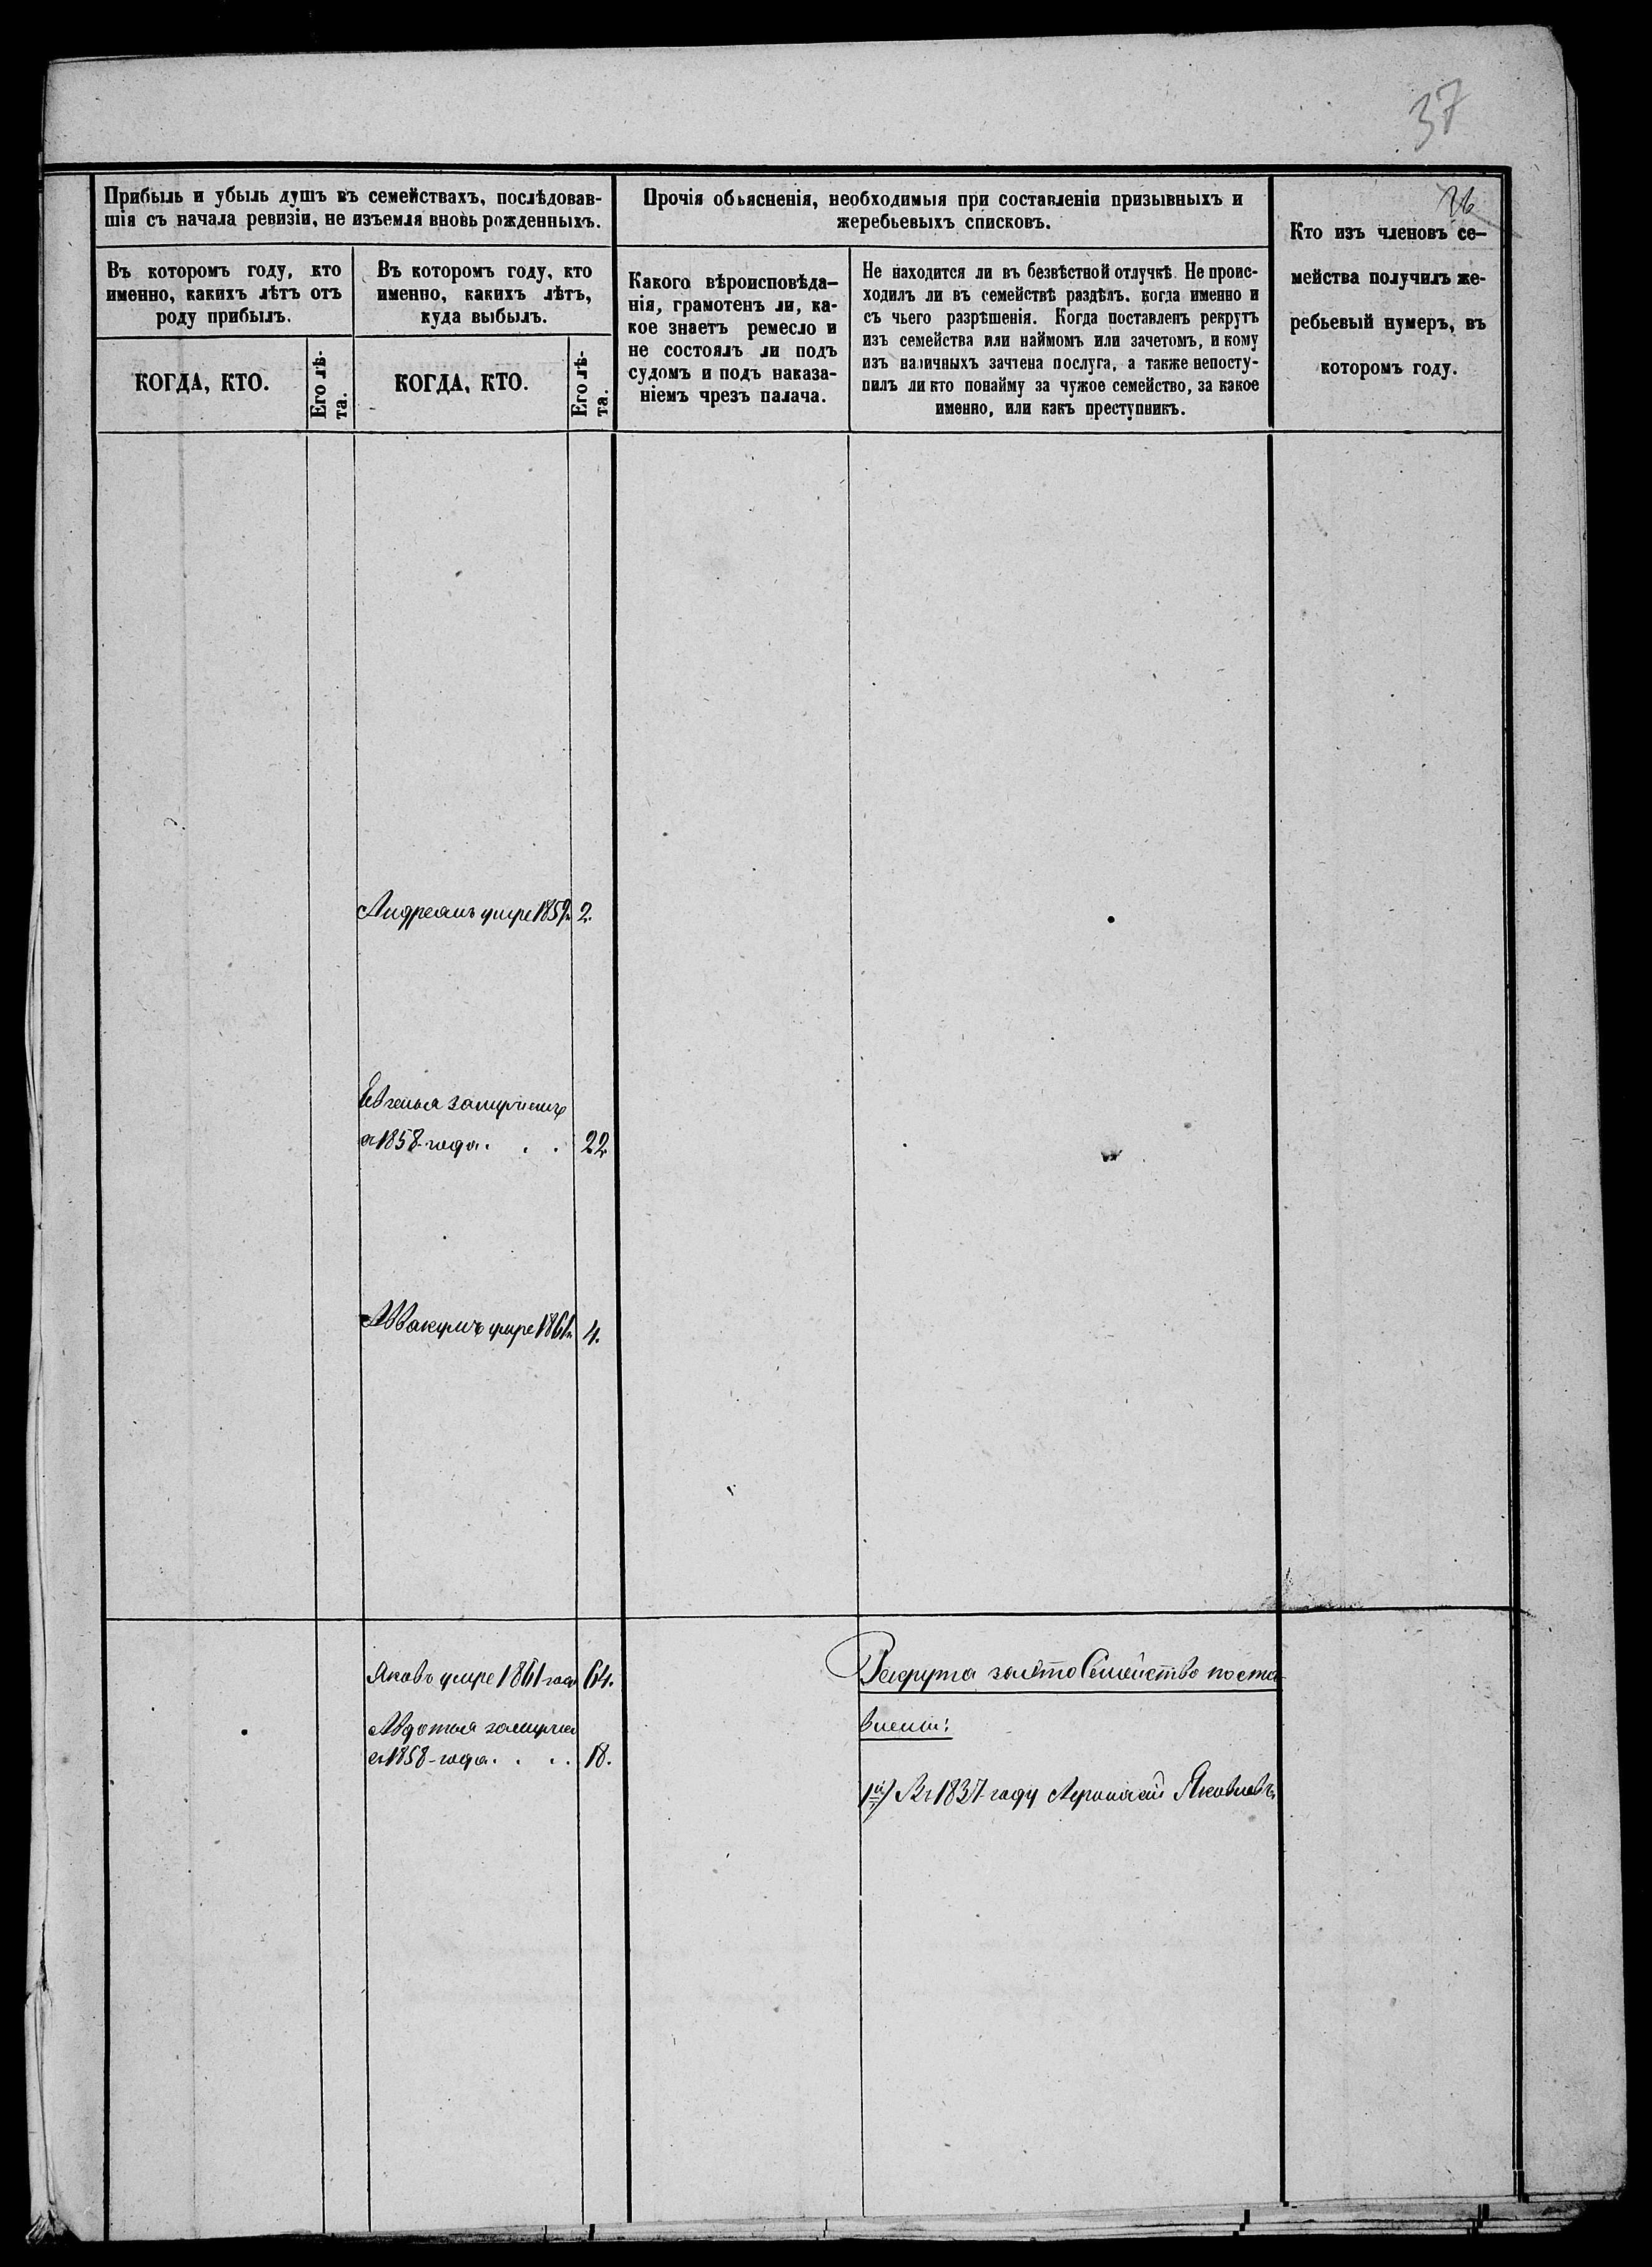 37
36
Прибыль и убыль душъ въ семействахъ, послѣдовав-
шія съ начала ревизіи, не изъемля вновь рожденныхъ.
Въ которомъ году, кто
именно, какихъ лѣтъ отъ
роду прибылъ.
КОГДА, КТО.
Его лѣ-
та.
Въ которомъ году, кто
именно, какихъ лѣтъ,
куда выбылъ.
КОГДА, КТО.
Его лѣ-
та.
Прочія объясненія, необходимыя при составленіи призывныхъ и
жеребьевыхъ списковъ.
Какого вѣроисповѣда-
нія, грамотенъ ли, ка-
кое знаетъ ремесло и
не состоялъ ли подъ
судомъ и подъ наказа-
ніемъ чрезъ палача.
Не находится ли въ безвѣстной отлучкѣ. Не проис-
ходилъ ли въ семействѣ раздѣлъ. когда именно и
съ чьего разрѣшенія. Когда поставленъ рекрутъ
изъ семейства или наймомъ или зачетомъ, и кому
изъ наличныхъ зачтена послуга, а также непосту-
пилъ ли кто понайму за чужое семейство, за какое
именно, или какъ преступникъ.
Кто изъ членовъ се-
мейства получилъ же-
ребьевый нумеръ, въ
которомъ году.
Андреанъ умре 1859г. 2.
Евгенья замужемъ
съ 1858 года. . . 22
Аввакумъ умре 1861г. 4.
Яковъ умре 1861 года 64.
Авдотья замужем
съ 1858 года. . . . 18.
Рекрута за это Семейство постав-
влены:
1й) Въ 1837 году Яковлевъ